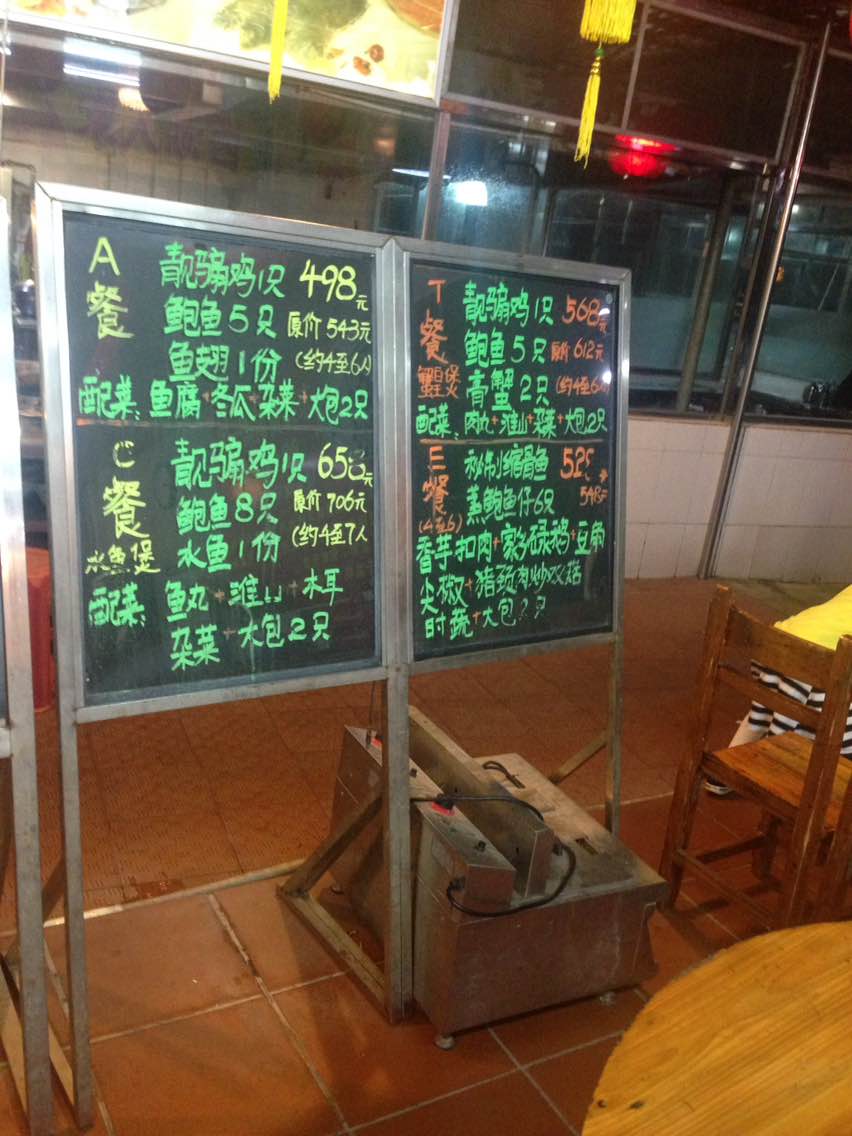 A餐
靓骟鸡1只 498元
鲍鱼5只 原价543元
鱼翅1份 (约4至6人)
配菜: 鱼腐+冬瓜+杂菜+大包2只
C餐
水鱼煲
靓骟鸡1只 658元
鲍鱼8只 原价706元
水鱼1份 (约4至7人
配菜: 鱼丸+淮山+木耳
杂菜+大包2只
T餐
蟹煲
靓骟鸡1只 568元
鲍鱼5只 原价612元
膏蟹2只 (约4至6人)
配菜: 肉丸+淮山+杂菜+大包2只
E餐
(4至6)
秘制缩骨鱼
蒸鲍鱼仔6只 548元
香芋扣肉+碌鹅+豆角
尖椒+猪颈肉炒
时蔬+大包 只